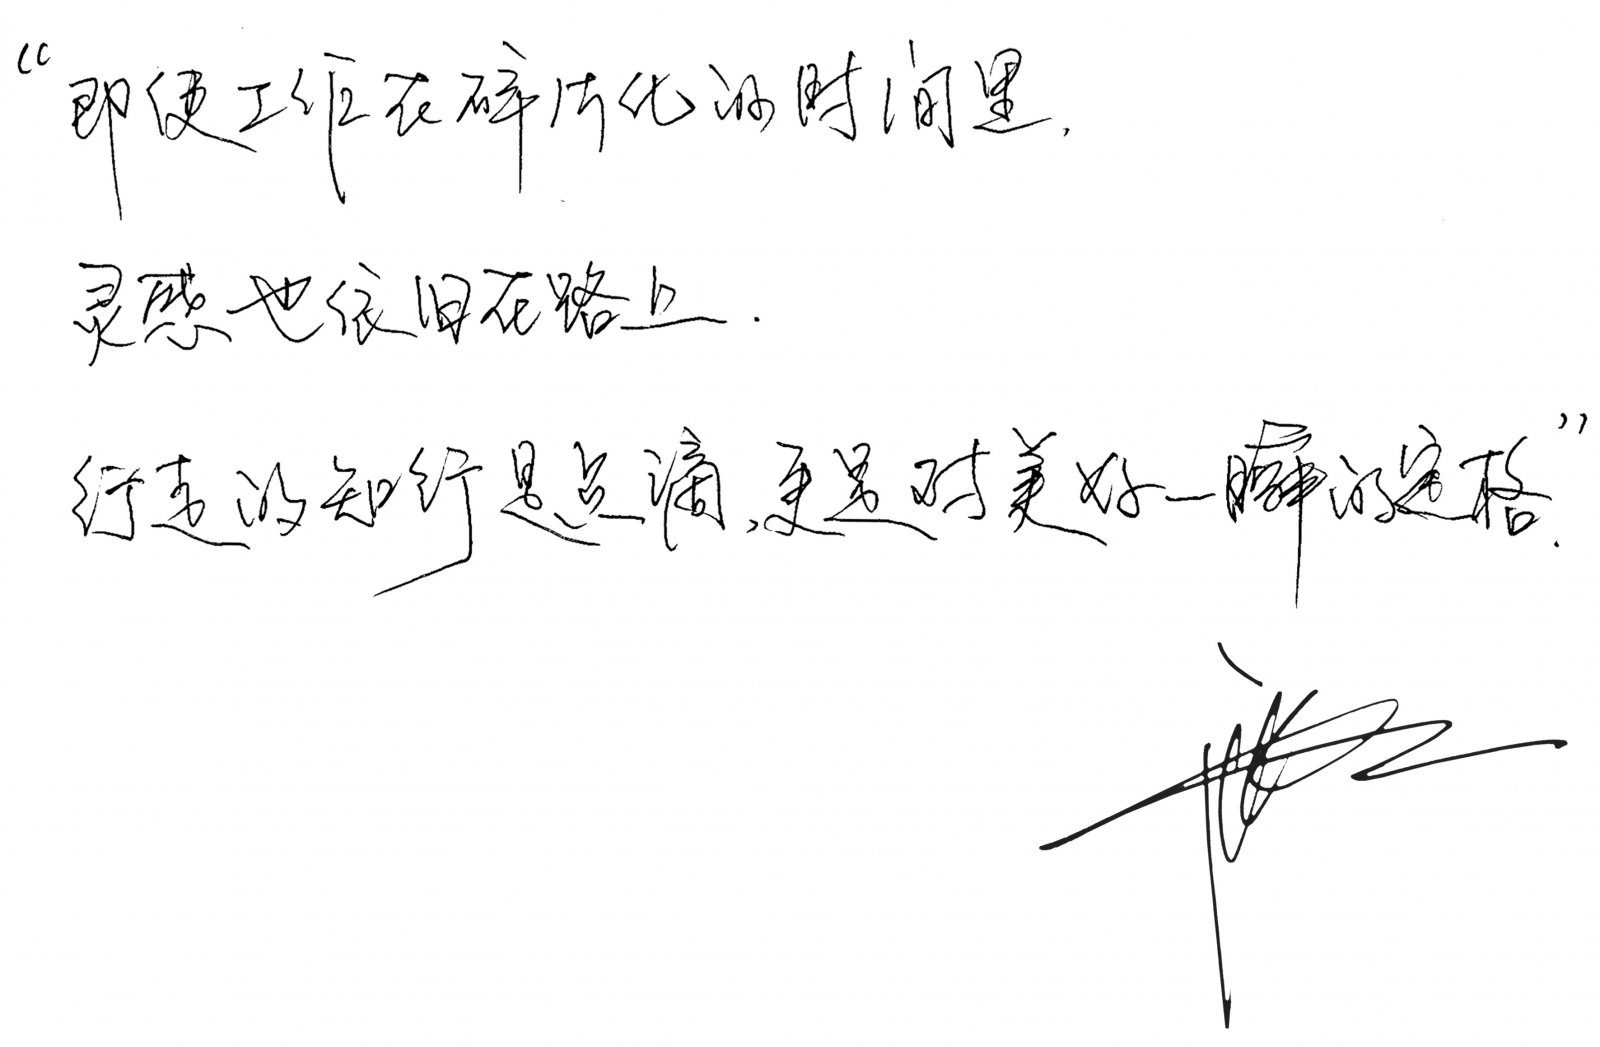 “即便工作在碎片化的时间里，
灵感也依旧在路上．
行走的知行是点滴，更是对美好一瞬的定格．”